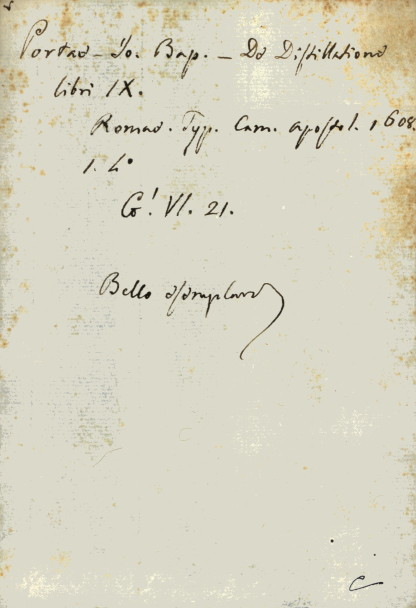 Portae - Io. Bap. - De Distillatione
libri IX.
Romae. Typ. Cam. apostol. 1608.
1. 4°
VI. 21.
Bello esemplare